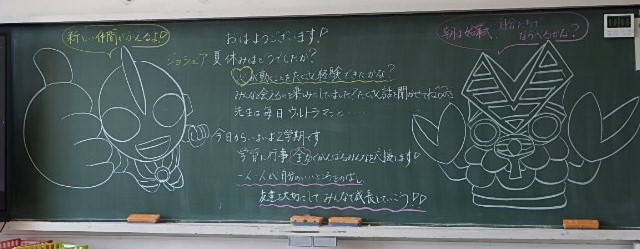 新しい仲間がふえるよ♪
おはようございます!
ジョシュア 夏休みはどうでしたか?
心動くことをたくさん経験できたかな?
みんなに会えるのを楽しみにしていました!たくさん話を聞かせてね
先生は毎日ウルトラマンと…
今日からいよいよ2学期です
学習に行事に全力でがんばるみんなを応援します!
一人一人が自分のいいところをのばし
友達を大切にしてみんなで成長していこう♪
朝は始業式